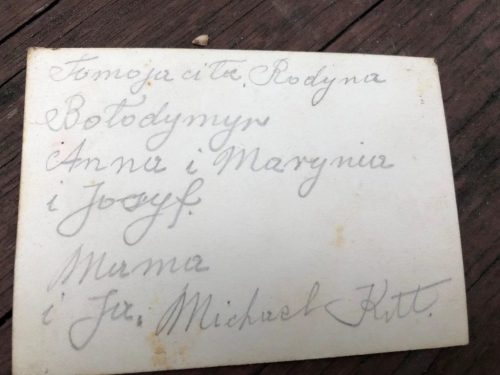 Tomoja ciła Rodyna
Bołodymyr
Anna i Marynia
i Josyf.
Mama
i Ja. Michael Kitt.